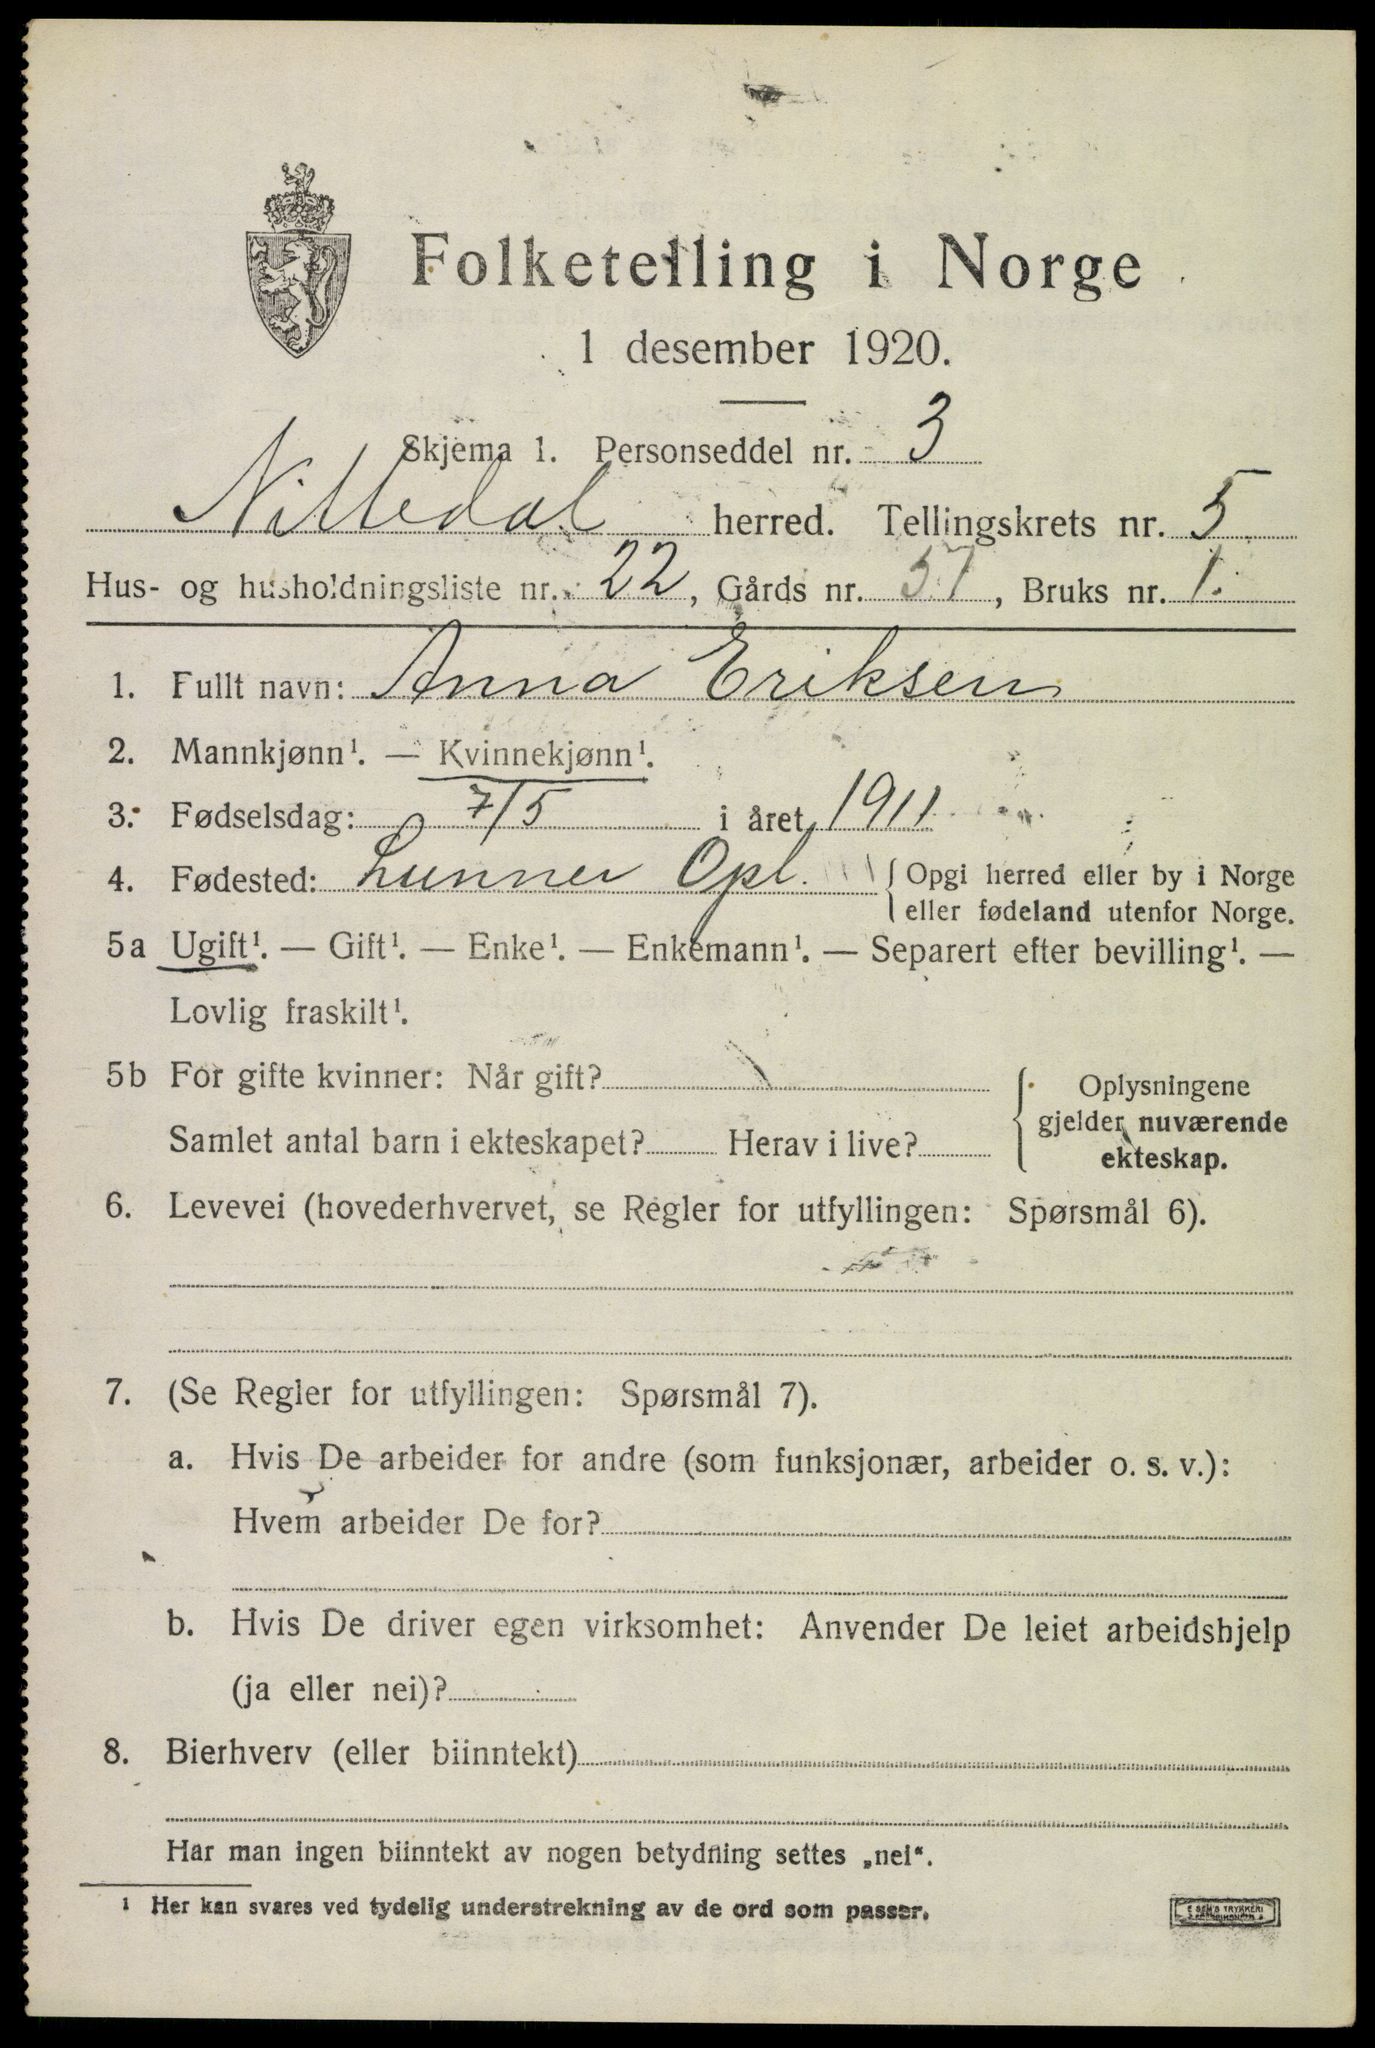 Folketelling i Norge
1 desember 1920.
Skjema 1. Personseddel nr. 3
Nittedal herred. Tellingskrets nr. 5
Hus- og husholdningsliste nr. 22, Gårds nr. 57, Bruks nr. 1.
1. Fullt navn: Anna Eriksen
2. Mannkjønn¹. — Kvinnekjønn¹.
3. Fødselsdag: 7/5 i året 1911
4. Fødested: Lunner Opl. { Opgi herred eller by i Norge
eller fødeland utenfor Norge.
5a Ugift¹. — Gift¹. — Enke¹. — Enkemann¹. — Separert efter bevilling¹. —
Lovlig fraskilt¹.
5b For gifte kvinner: Når gift?
Samlet antal barn i ekteskapet? Herav i live?
{ Oplysningene
gjelder nuværende
ekteskap.
6. Levevei (hovederhvervet, se Regler for utfyllingen: Spørsmål 6).
7. (Se Regler for utfyllingen: Spørsmål 7).
a. Hvis De arbeider for andre (som funksjonær, arbeider o. s. v.):
Hvem arbeider De for?
b. Hvis De driver egen virksomhet: Anvender De leiet arbeidshjelp
(ja eller nei)?
8. Bierhverv (eller biinntekt)
Har man ingen biinntekt av nogen betydning settes „nei“.
¹ Her kan svares ved tydelig understrekning av de ord som passer.